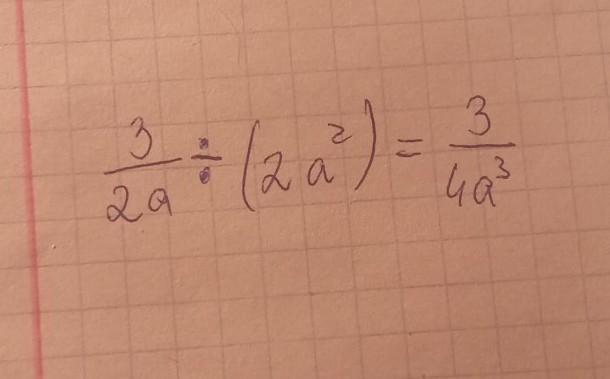 3/2a ÷ (2a²) = 3/4a³